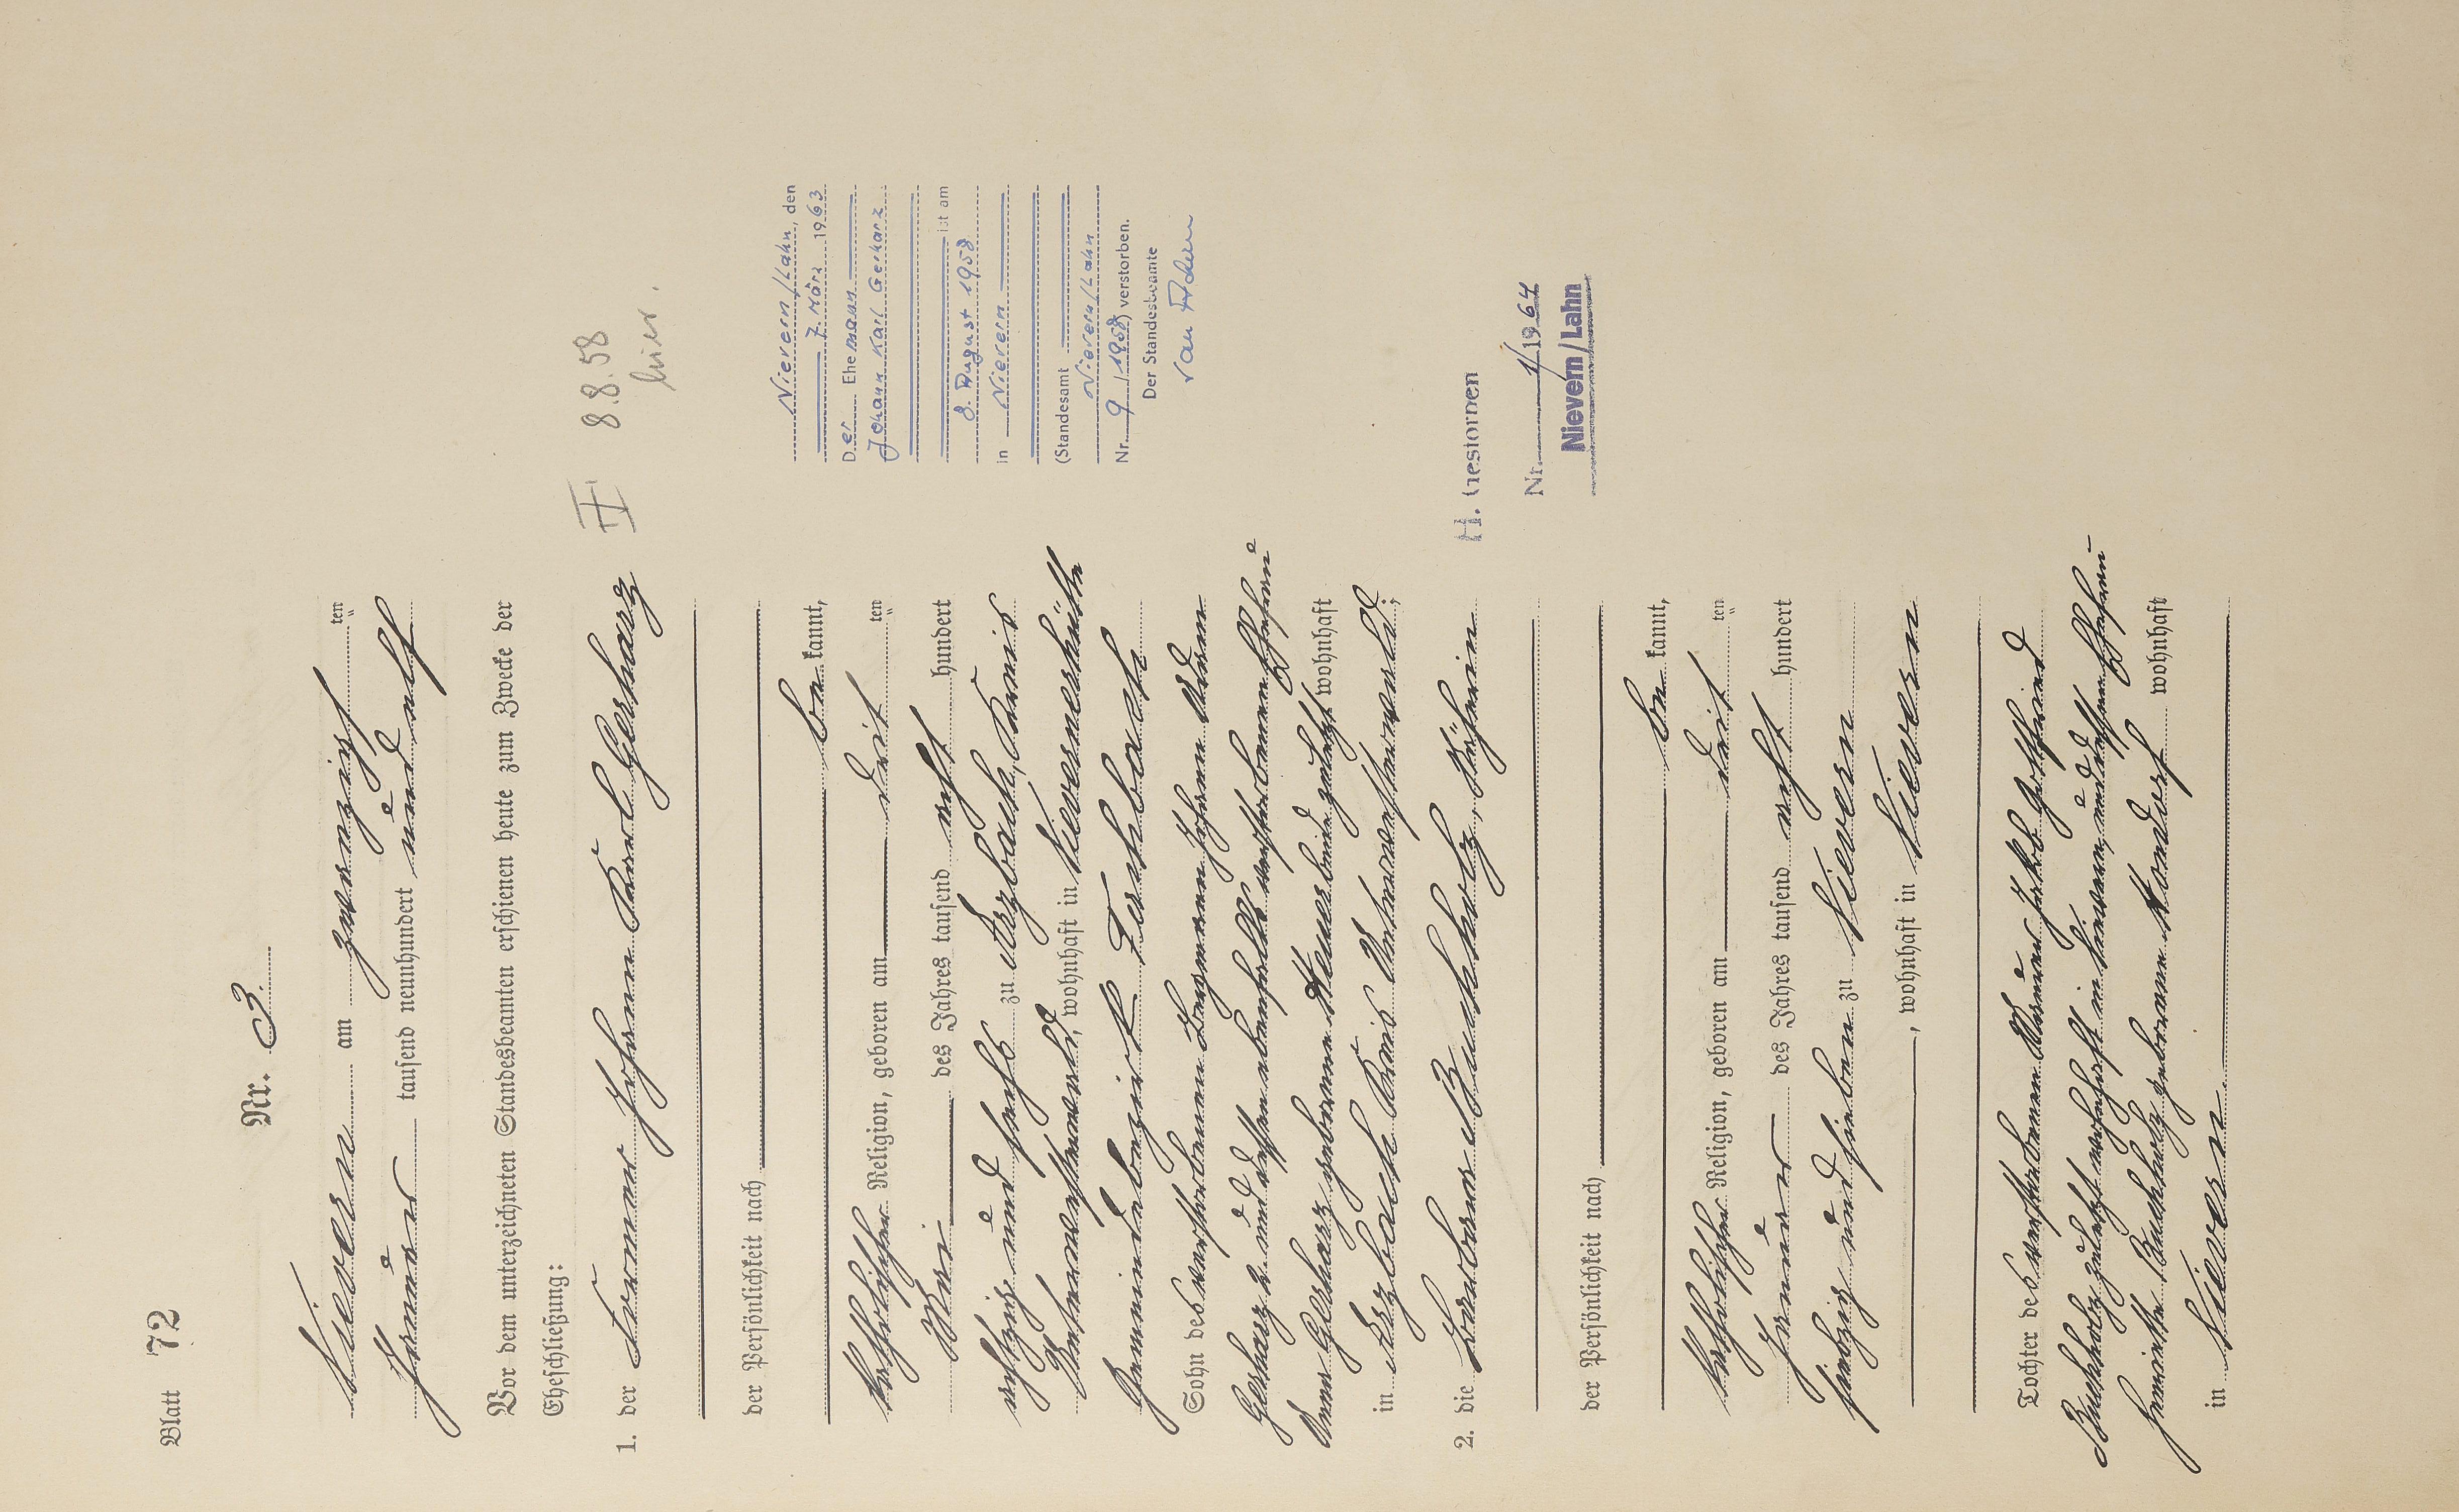 Blatt 72
Nr. 3.
Nievern am zwanzigsten
Januar tausend neunhundert und elf
Vor dem unterzeichneten Standesbeamten erschienen heute zum Zwecke der
Eheschließung:
1. der Former Johann Karl Gerharz
der Persönlichkeit nach
be kannt,
katholischer Religion, geboren am drit ten
Mai des Jahres tausend acht hundert
achtzig und sechs zu Arzbach, Kreis
Unterwesterwald, wohnhaft in Nievernerhütte
Gemeindebezirk Fachbach
Sohn des verstorbenen Bergmann Johann Adam
Gerharz 2. und dessen ebenfalls verstorbenen Ehefrau
Anna Gerharz geborene zuletzt wohnhaft
in Arzbach Kreis Unterwesterwald;
2. die Barbara Buchholz, Näherin
der Persönlichkeit nach
be kannt,
katholischer Religion, geboren am drit ten
Januar des Jahres tausend acht hundert
siebzig und sieben zu Nievern
, wohnhaft in Nievern
Tochter des verstorbenen Maurer Jakob Gottfried
Buchholz zuletzt wohnhaft in Nievern, und dessen Ehefrau
Henriette Buchholz geborenen Mondorf wohnhaft
in Nievern.
8.8.58
hier.
Nievern/Lahn, den
7. März 1963
Der Ehemann
Johann Karl Gerharz
ist am
8. August 1958
in Nievern
(Standesamt
Nievern/Lahn
Nr. 9/1958) verstorben.
Der Standesbeamte
H. Gestorben
Nr. 1/1964
Nievern/Lahn